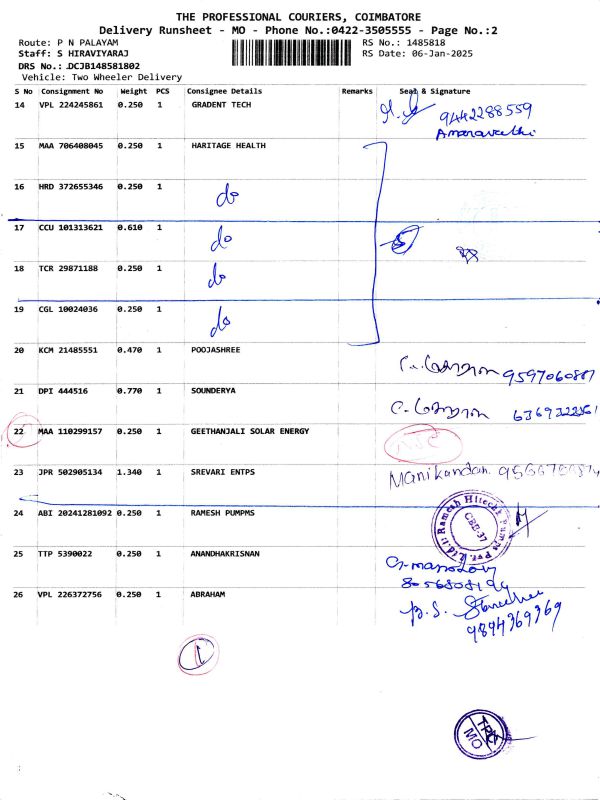 THE PROFESSIONAL COURIERS, COIMBATORE
Delivery Runsheet - MO - Phone No.:0422-3505555 - Page No.:2
Route: P N PALAYAM RS No.: 1485818
Staff: S HIRAVIYARAJ RS Date: 06-Jan-2025
DRS No.: DCJB148581802
Vehicle: Two Wheeler Delivery
S No Consignment No Weight PCS Consignee Details Remarks Seal & Signature
14 VPL 224245861 0.250 1 GRADENT TECH 9442288559
Amaravathi
15 MAA 706408045 0.250 1 HARITAGE HEALTH
16 HRD 372655346 0.250 1 do
17 CCU 101313621 0.610 1 do
18 TCR 29871188 0.250 1 do
19 CGL 10024036 0.250 1 do
20 KCM 21485551 0.470 1 POOJASHREE
21 DPI 444516 0.770 1 SOUNDERYA
22 MAA 110299157 0.250 1 GEETHANJALI SOLAR ENERGY
23 JPR 502905134 1.340 1 SREVARI ENTPS Manikandan
24 ABI 20241281092 0.250 1 RAMESH PUMPMS
25 TTP 5390022 0.250 1 ANANDHAKRISNAN
26 VPL 226372756 0.250 1 ABRAHAM B.S.
9894369369
1
TPC
MO